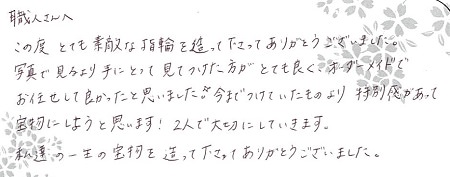 職人さんへ
この度 とても素敵な指輪を造って下さってありがとうございました。
写真で見るより手にとって見てつけた方がとても良く、オーダーメイドで
お任せして良かったと思いました♪今までつけていたものより 特別感があって
宝物にしようと思います！2人で大切にしていきます。
私達の一生の宝物を造って下さってありがとうございました。